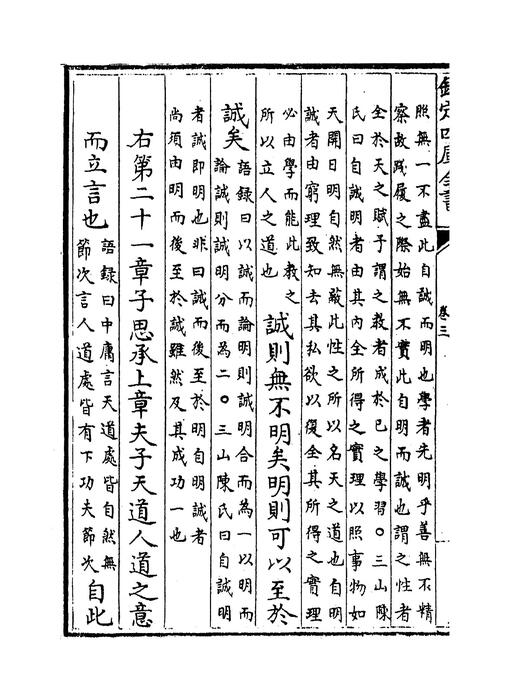 欽定四庫全書
卷三
照無一不盡此自誠而明也學者先明乎善無不精
察故踐履之際始無不實此自明而誠也謂之性者
全於天之賦予謂之教者成於已之學習○三山陳
氏曰自誠明者由其内全所得之實理以照事物如
天開日明自然無蔽此性之所以名天之道也自明
誠者由窮理致知去其私欲以復全其所得之實理
必由學而能此教之
所以立人之道也
誠則無不明矣明則可以至於
誠矣
語録曰以誠而論明則誠明合而為一以明而
論誠則誠明分而為二○三山陳氏曰自誠明
者誠即明也非曰誠而後至於明自明誠者
尚須由明而後至於誠雖然及其成功一也
右第二十一章子思承上章夫子天道人道之意
而立言也
語録曰中庸言天道處皆自然無
節次言人道處皆有下功夫節次
自此